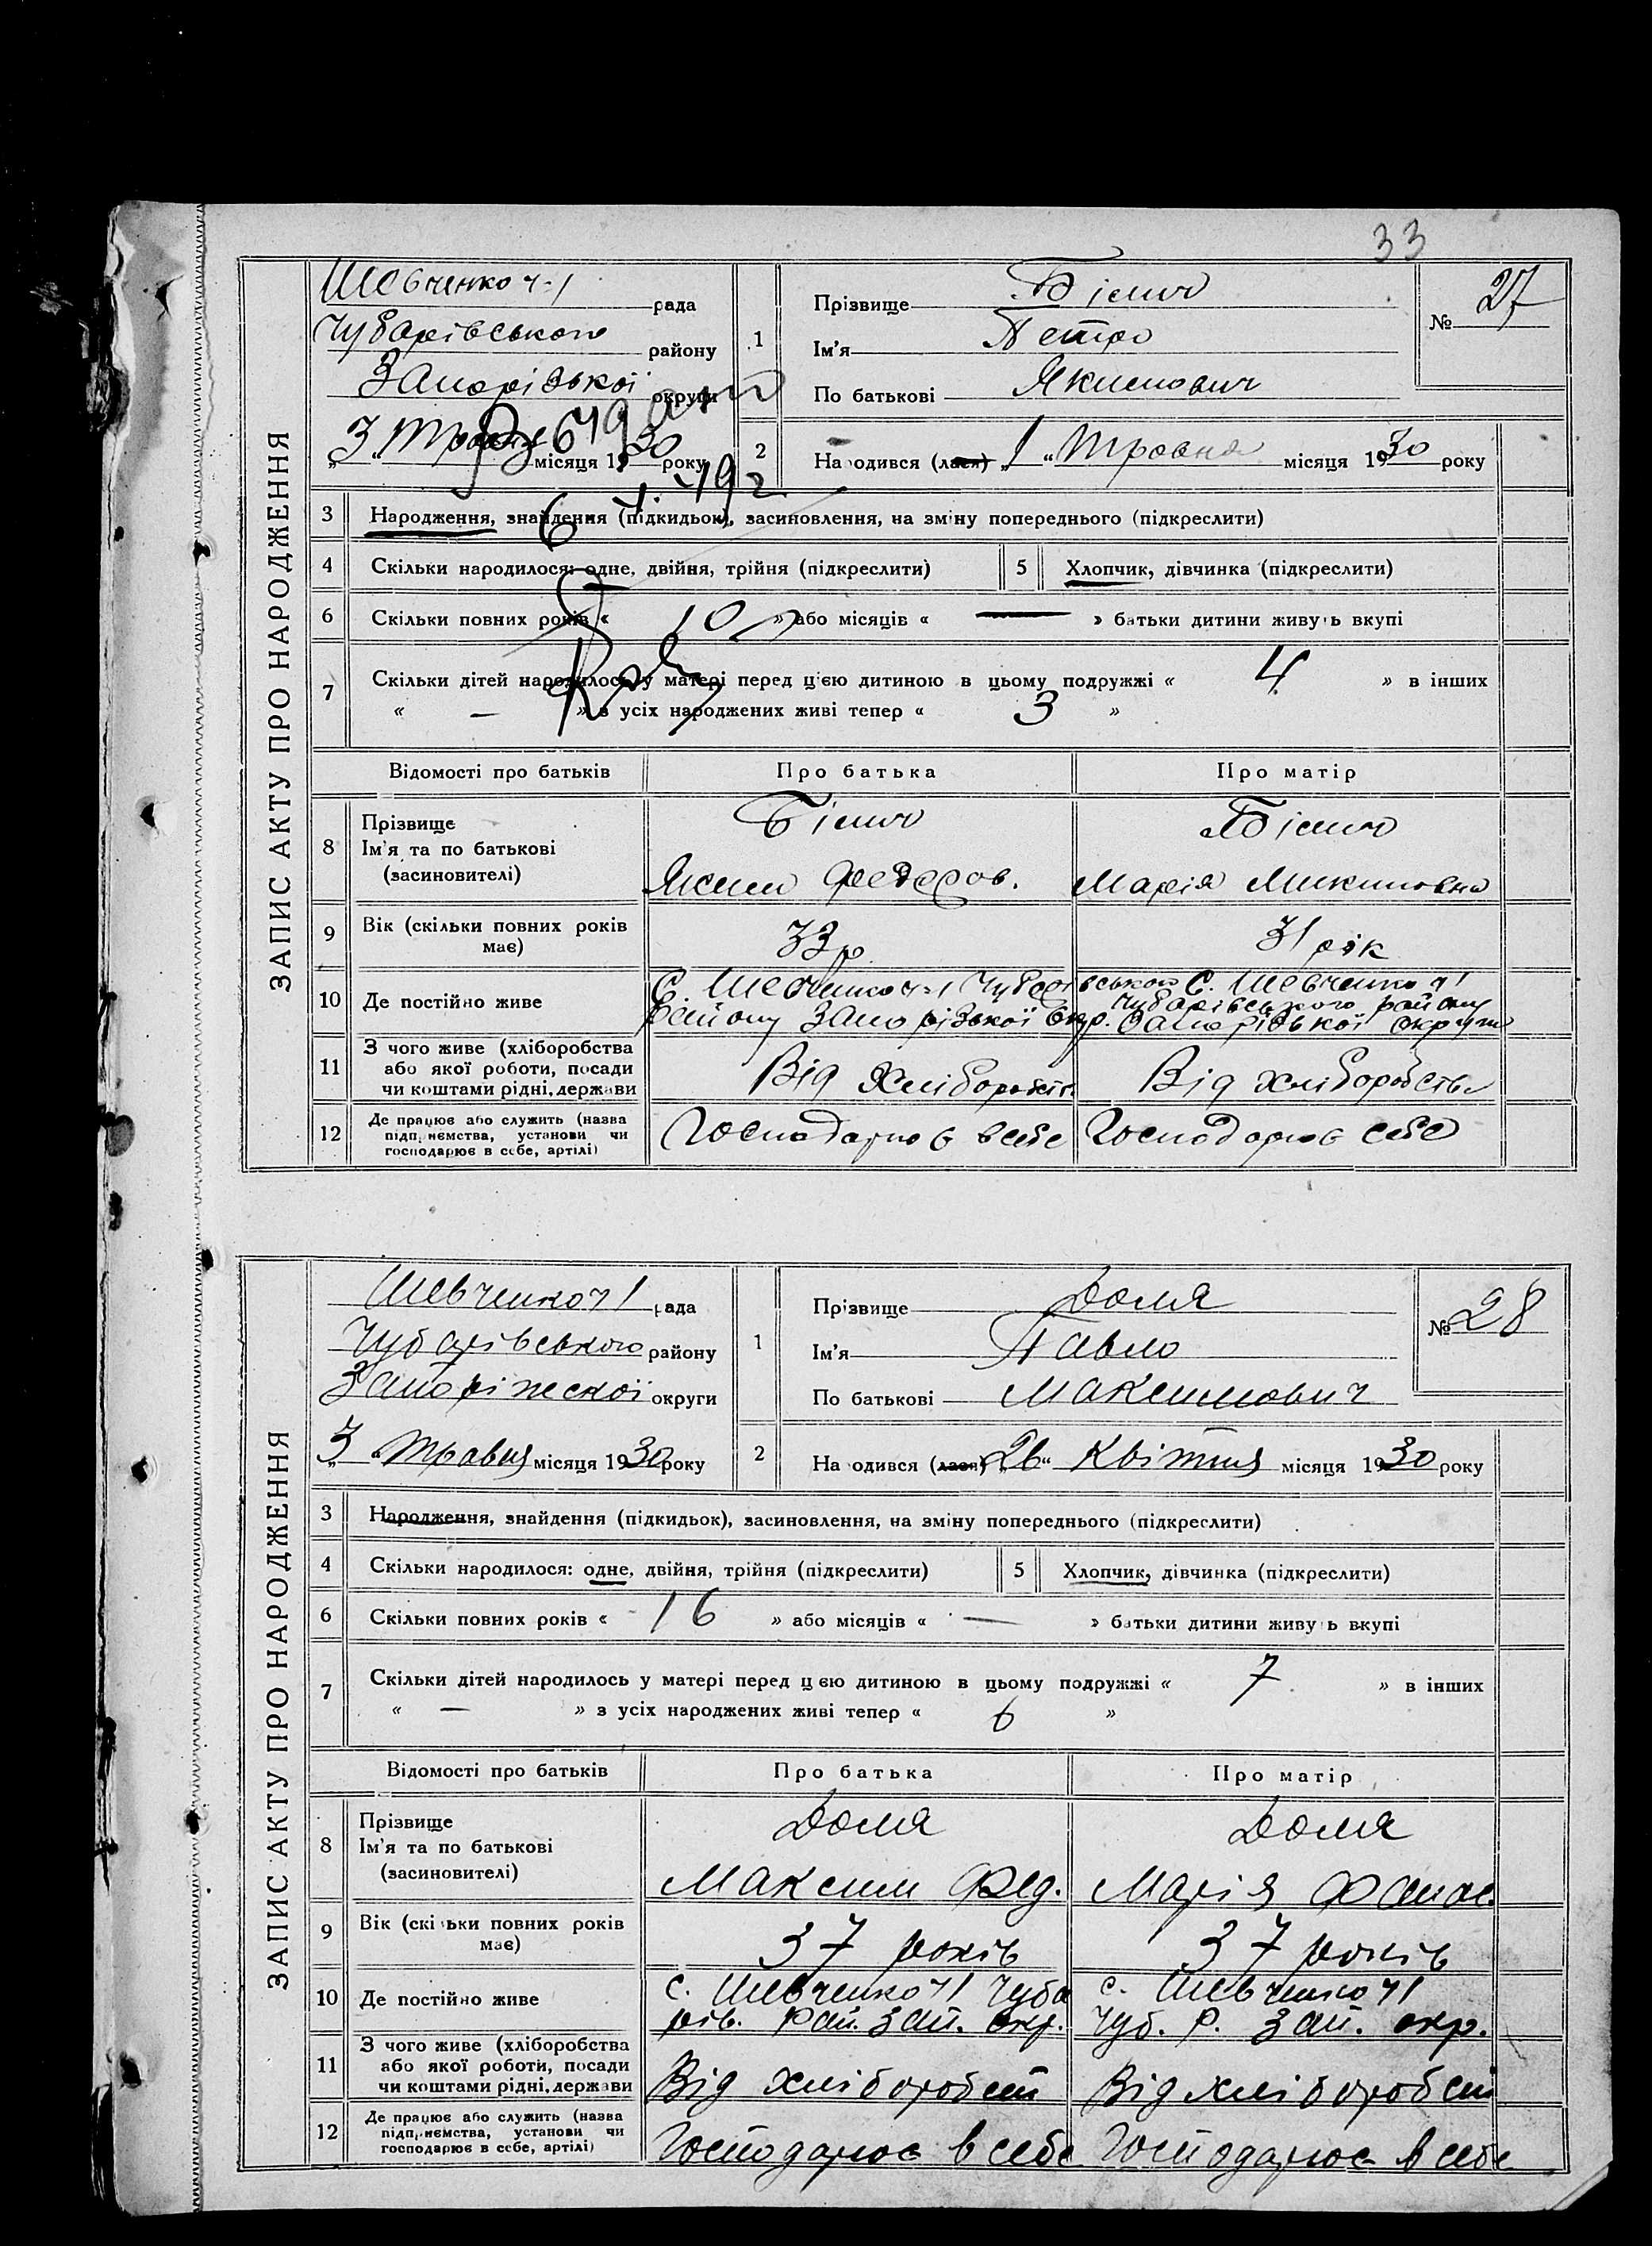 33
ЗАПИС АКТУ ПРО НАРОДЖЕННЯ
Шевченко ч-1 рада
Чубарівського району
Запорізької округи
„3" Травня місяця 1930 року
1 Прізвище Білич
Ім'я Петро
По батькові Якимович
№ 27
2 Народився (лася) „1" Травня місяця 1930 року
3 Народження, знайдення (підкидьок), засиновлення, на зміну попереднього (підкреслити)
4 Скільки народилося: одне, двійня, трійня (підкреслити)
5 Хлопчик, дівчинка (підкреслити)
6 Скільки повних років « 10 » або місяців « — » батьки дитини живуть вкупі
7 Скільки дітей народилось у матері перед цією дитиною в цьому подружжі « 4 » в інших
« — » з усіх народжених живі тепер « 3 »
Відомості про батьків Про батька Про матір
8 Прізвище Ім'я та по батькові (засиновителі)
Білич Білич
Яким Федоров. Марія Микитовна
9 Вік (скільки повних років має) 33 р. 31 рік
10 Де постійно живе
С. Шевченко ч-1 Чубарівського району Запорізької окр.
С. Шевченко ч1 Чубарівського району Запорізької округи
11 З чого живе (хліборобства або якої роботи, посади чи коштами рідні, держави
Від хліборобств. Від хліборобства
12 Де працює або служить (назва підприємства, установи чи господарює в себе, артілі)
Господарює в себе Господарює в себе
ЗАПИС АКТУ ПРО НАРОДЖЕННЯ
Шевченко ч1 рада
Чубарівського району
Запоріжскої округи
„3" Травня місяця 1930 року
1 Прізвище Доля
Ім'я Павло
По батькові Максимович
№ 28
2 Народився (лася) „26" Квітня місяця 1930 року
3 Народження, знайдення (підкидьок), засиновлення, на зміну попереднього (підкреслити)
4 Скільки народилося: одне, двійня, трійня (підкреслити)
5 Хлопчик, дівчинка (підкреслити)
6 Скільки повних років « 16 » або місяців « — » батьки дитини живуть вкупі
7 Скільки дітей народилось у матері перед цією дитиною в цьому подружжі « 7 » в інших
« — » з усіх народжених живі тепер « 6 »
Відомості про батьків Про батька Про матір
8 Прізвище Ім'я та по батькові (засиновителі)
Доля Доля
Максим Фед. Марія
9 Вік (скільки повних років має) 37 років 37 років
10 Де постійно живе
с. Шевченко ч1 Чубарів. Рай. Зап. окр.
с. Шевченко ч1 Чуб. Р. Зап. окр.
11 З чого живе (хліборобства або якої роботи, посади чи коштами рідні, держави
Від хліборобст Від хліборобст
12 Де працює або служить (назва підприємства, установи чи господарює в себе, артілі)
Господарює в себе Господарює в себе